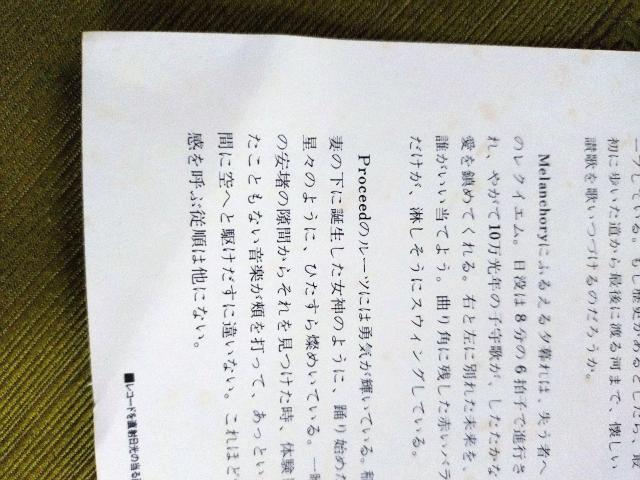 ープしている。もし歴史があるとしたら、最
初に歩いた道から最後に渡る河まで、懐しい
讃歌を歌いつづけるのだろうか。
Melanchoryにふるえる夕暮れは、失う者へ
のレクイエム。日没は8分の6拍子で進行さ
れ、やがて10万光年の子守歌が、したたかな
愛を鎮めてくれる。右と左に別れた未来を、
誰がいい当てよう。曲り角に残した赤いバラ
だけが、淋しそうにスウィングしている。
Proceedのルーツには勇気が輝いている。稲
妻の下に誕生した女神のように、踊り始めた
星々のように、ひたすら燦めいている。一瞬
の安堵の隙間からそれを見つけた時、体験し
たこともない音楽が頬を打って、あっという
間に空へと駆けだすに違いない。これほど
感を呼ぶ従順は他にない。
■レコードを直射日光の当る